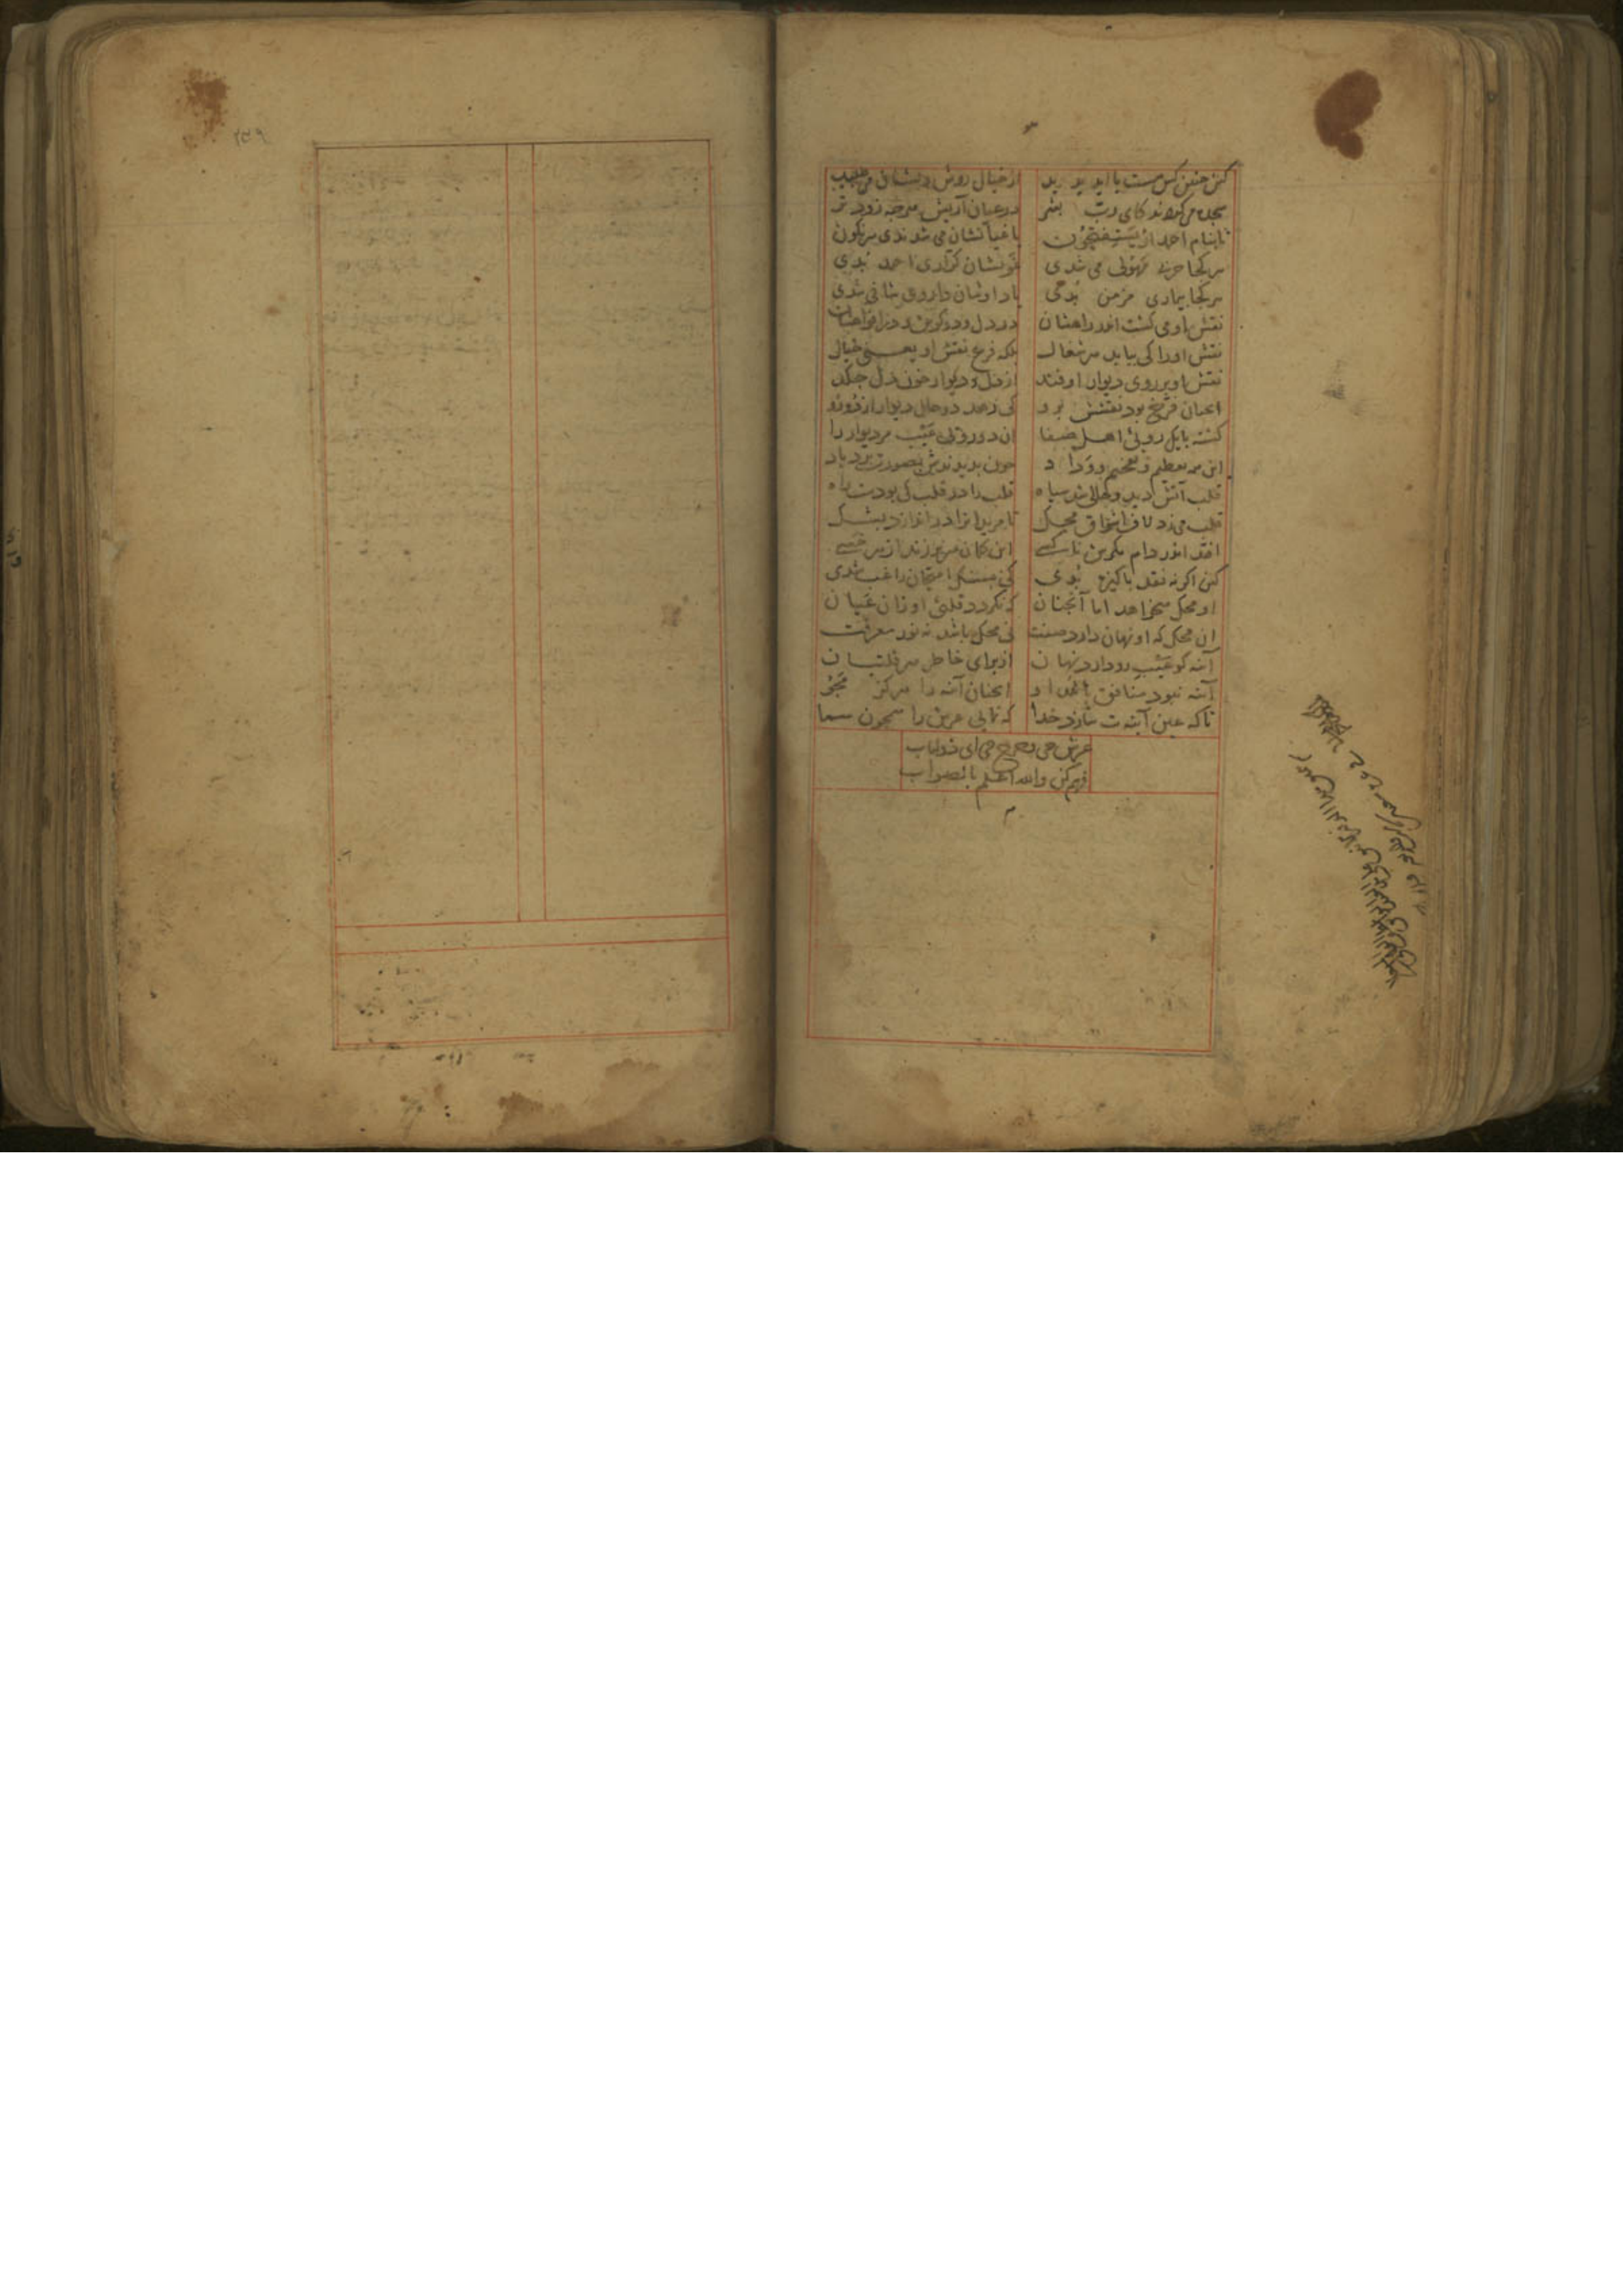 ۲۳۹
کین چنین کس هست یا آید پدید از خیال روش دلشان می طپید
سجده می کردند کای رب بشر در عیان آریش هرچه زودتر
تا بنام احمد از یستفتحون باغیانشان می شدندی سرنکون
هر کجا حرب مهولی می شدی غوثشان کراری احمد بدی
هر کجا بیماری مزمن بدی یاد اوشان داروی شافی شدی
نقش او می کشت اندر راهشان در دل و در کوش و در افواهشان
نقش او را کی بیابد هر شغال بلکه فرع نقش او یعنی خیال
نقش او بر روی دیوار ار فتد از دل دیوار خون دل چکد
انچنان فرخ بود نقشش برو که رهد در حال دیوار از دو رو
کشته با یک رویی اهل صفا ان دو رویی عیب مر دیوار را
این همه تعظیم و تفخیم و وداد چون بدیدندش بصورت برد باد
قلب آتش دید و در حال شد سیاه قلب را در قلب کی بودست راه
قلب می زد لاف اشواق محک تا مریدانرا در اندازد بشک
افتد اندر دام مکرش ناکسی این کمان سر بر زند از هر خسی
کین اکر نه نقد پاکیزه بدی کی بسنک امتحان راغب شدی
او محک میخواهد اما آنچنان که نکردد قلبی او زان عیان
ان محک که او نهان دارد صفت نی محک باشد نه نور معرفت
آینه کو عیب رو دارد نهان از برای خاطر هر قلتبان
آینه نبود منافق باشد او اینچنان آینه را هرکز مجو
تا که عین آینه ت سازد خدا که نمایی عرش را همچون سما
عرش چی و چرخ چی ای ذولباب
فهم کن والله اعلم بالصواب
م